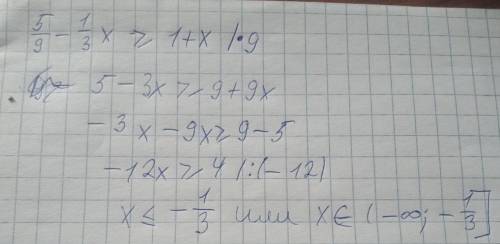 5/9 - 1/3 x ≥ 1+x |·9
5 - 3x ≥ 9 + 9x
-3x - 9x ≥ 9 - 5
-12x ≥ 4 |:(-12)
x ≤ -1/3 или x∈(-∞; -1/3]